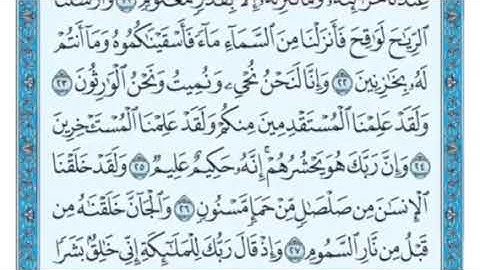 عِندَنَا خَزَآئِنُهُۥ وَمَا نُنَزِّلُهُۥٓ إِلَّا بِقَدَرٍ مَّعْلُومٍ ٢١ وَأَرْسَلْنَا
ٱلرِّيَٰحَ لَوَٰقِحَ فَأَنزَلْنَا مِنَ ٱلسَّمَآءِ مَآءً فَأَسْقَيْنَٰكُمُوهُ وَمَآ أَنتُمْ
لَهُۥ بِخَٰزِنِينَ ٢٢ وَإِنَّا لَنَحْنُ نُحْىِۦ وَنُمِيتُ وَنَحْنُ ٱلْوَٰرِثُونَ ٢٣
وَلَقَدْ عَلِمْنَا ٱلْمُسْتَقْدِمِينَ مِنكُمْ وَلَقَدْ عَلِمْنَا ٱلْمُسْتَـْٔخِرِينَ
٢٤ وَإِنَّ رَبَّكَ هُوَ يَحْشُرُهُمْ ۚ إِنَّهُۥ حَكِيمٌ عَلِيمٌ ٢٥ وَلَقَدْ خَلَقْنَا
ٱلْإِنسَٰنَ مِن صَلْصَٰلٍ مِّنْ حَمَإٍ مَّسْنُونٍ ٢٦ وَٱلْجَآنَّ خَلَقْنَٰهُ مِن
قَبْلُ مِن نَّارِ ٱلسَّمُومِ ٢٧ وَإِذْ قَالَ رَبُّكَ لِلْمَلَٰٓئِكَةِ إِنِّى خَٰلِقٌۢ بَشَرًا